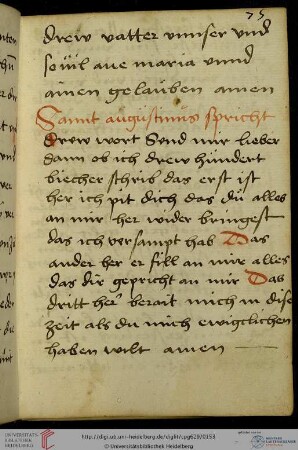 75
drew vatter vnnser vnd
souil aue maria vnnd
ainen gelauben amen
Sannt augustinus spricht
drew wort Send mir lieber
dann ob ich drew hundert
biecher schrib das erst ist
her ich pit dich das du alles
an mir her wider bringest
das ich versampt hab Das
ander her er fill an mir alles
das dir gepricht an mir Das
dritt her berait mich in diser
zeit als du mich ewigclichen
haben wilt amen
http://digi.ub.uni-heidelberg.de/diglit/cpg629/0153
© Universitätsbibliothek Heidelberg
UNIVERSITÄTS-
BIBLIOTHEK
HEIDELBERG